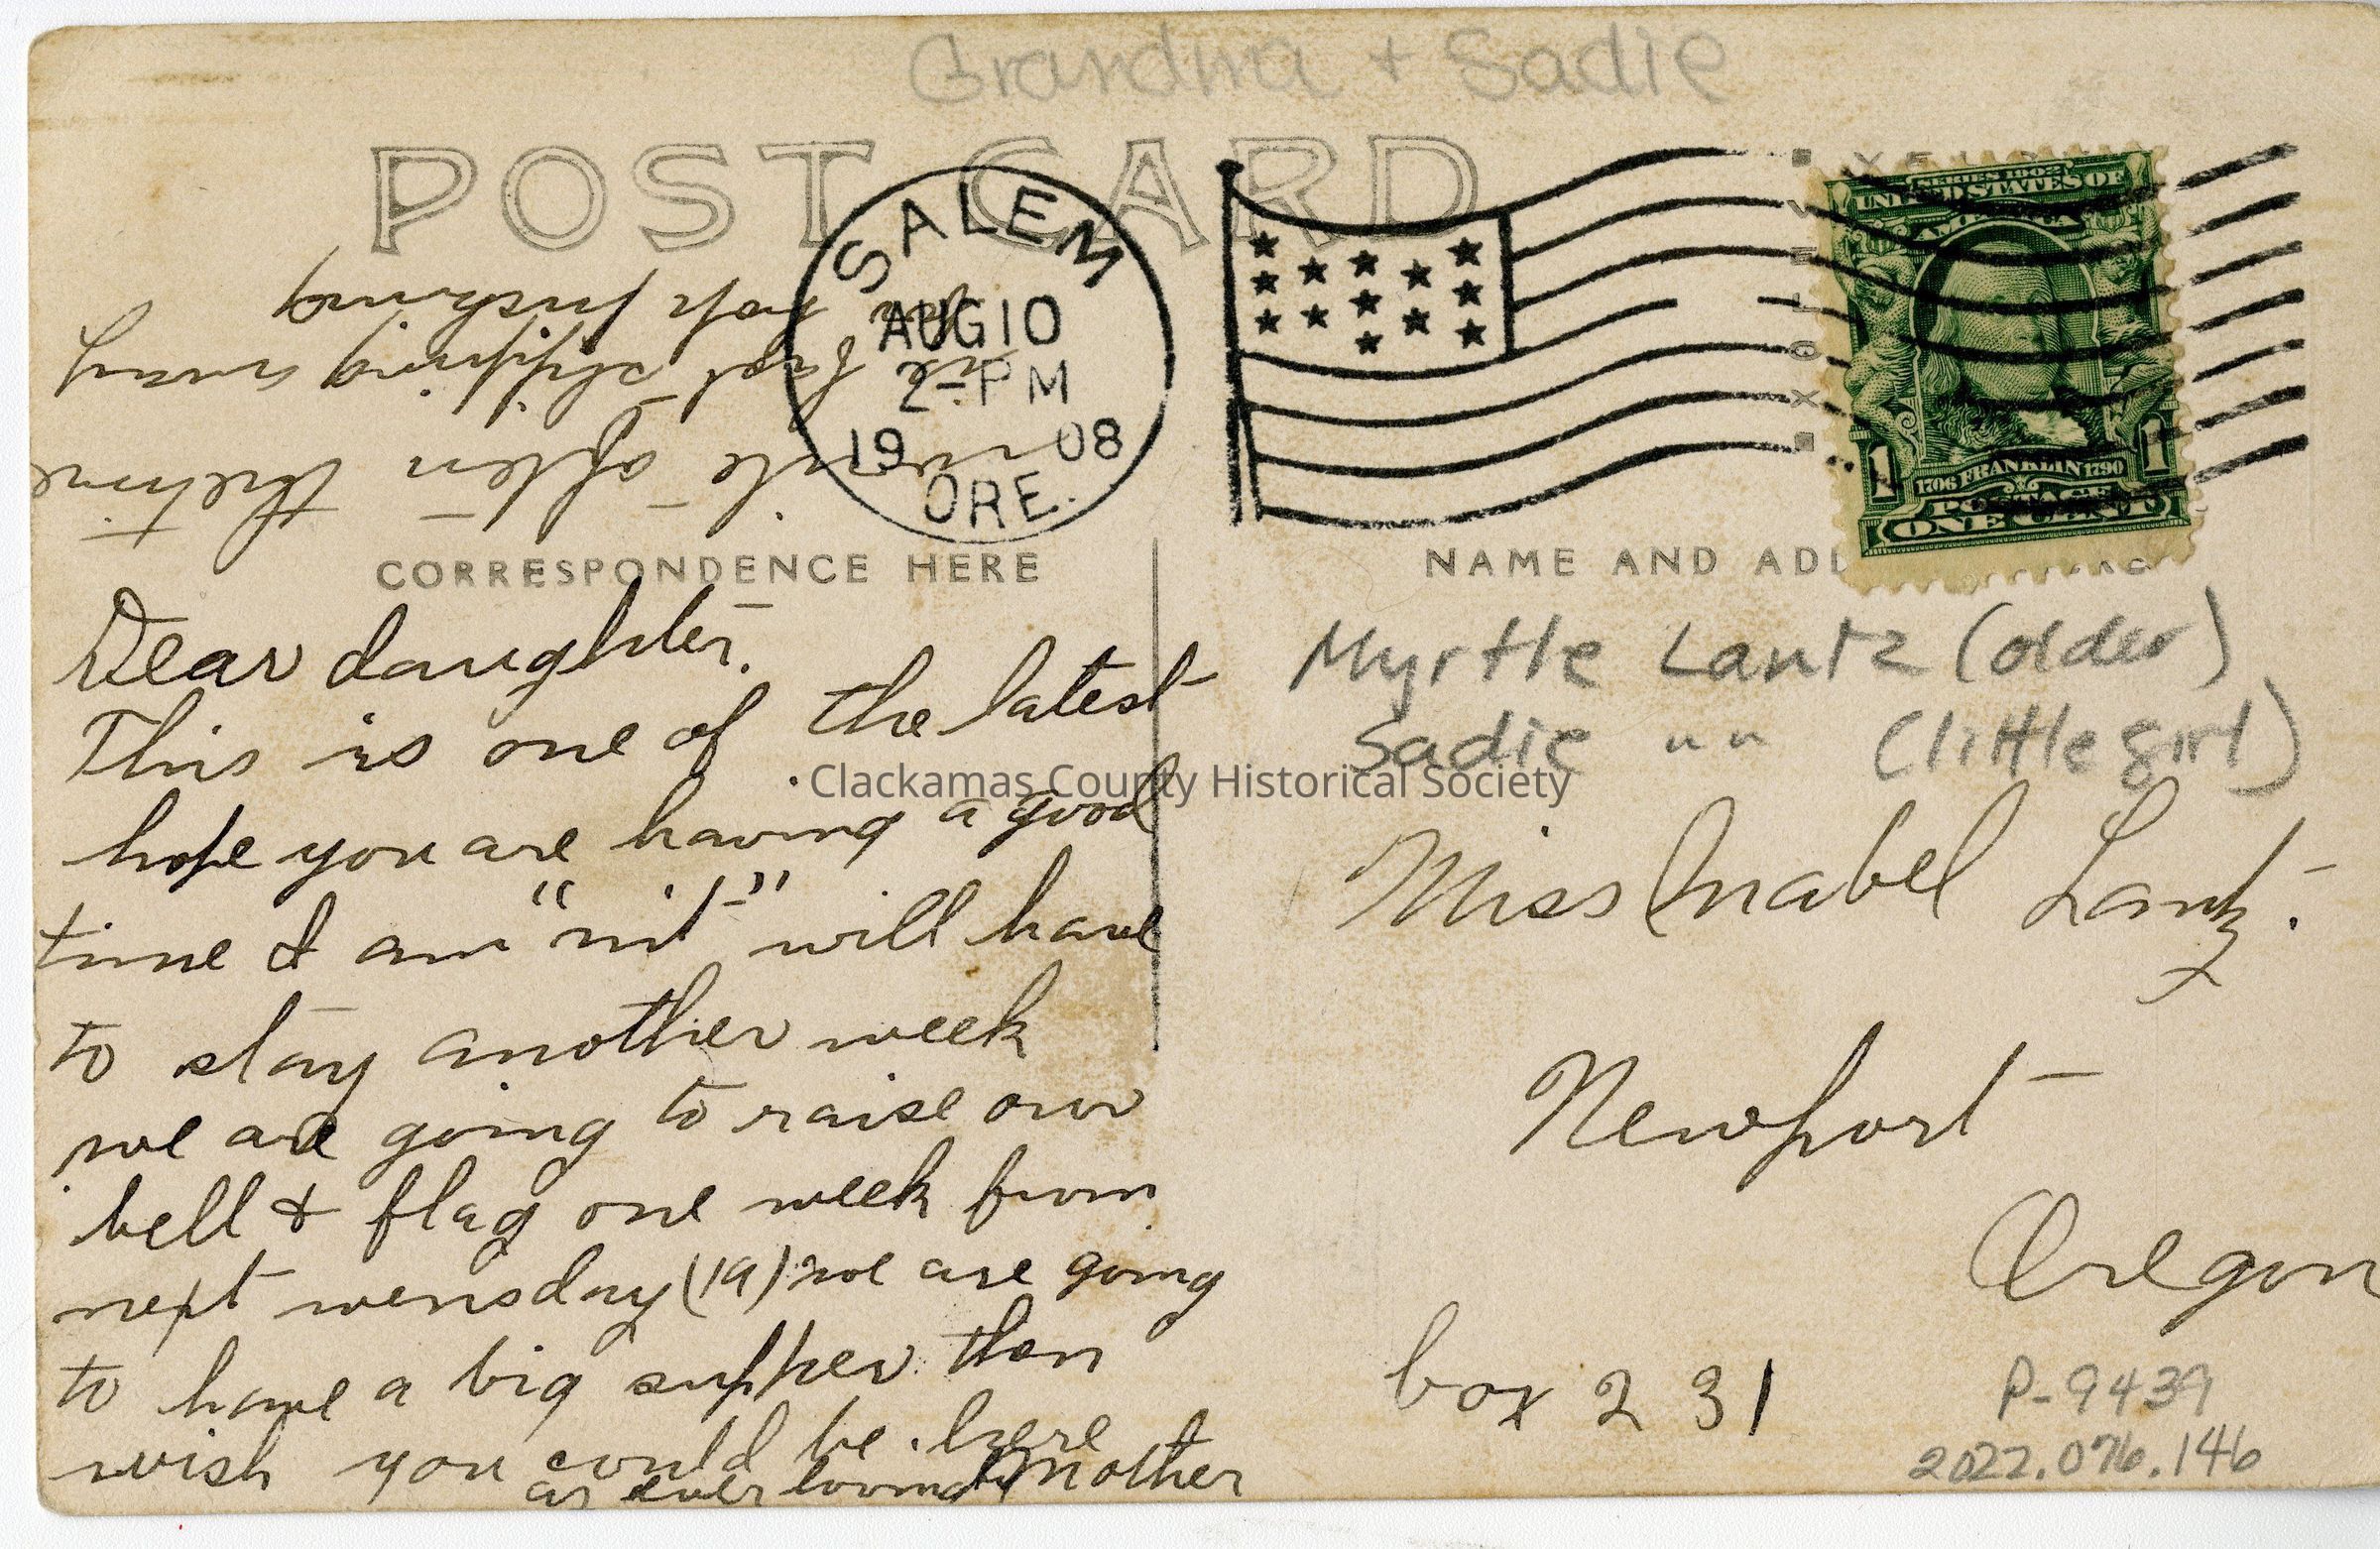 Grandma + Sadie
POST CARD
SALEM
AUG 10
2-PM
1908
ORE.
SERIES 1902
UNITED STATES OF
AMERICA
1 1
1706 FRANKLIN 1790
POSTAGE
ONE CENT
CORRESPONDENCE HERE
NAME AND ADD
Dear daughter.
This is one of the latest
hope you are having a good
time I am "nit" will have
to stay another week
we are going to raise our
bell & flag one week from
next wensday (19) we are going
to have a big supper then
wish you could be here
as ever loving Mother
write often the time
is fast slipping away
hop picking
Myrtle Lantz (older)
Sadie " " (little girl)
Clackamas County Historical Society
Miss Inabel Lantz.
Newport
Oregon
box 231
P-9439
2022.076.146